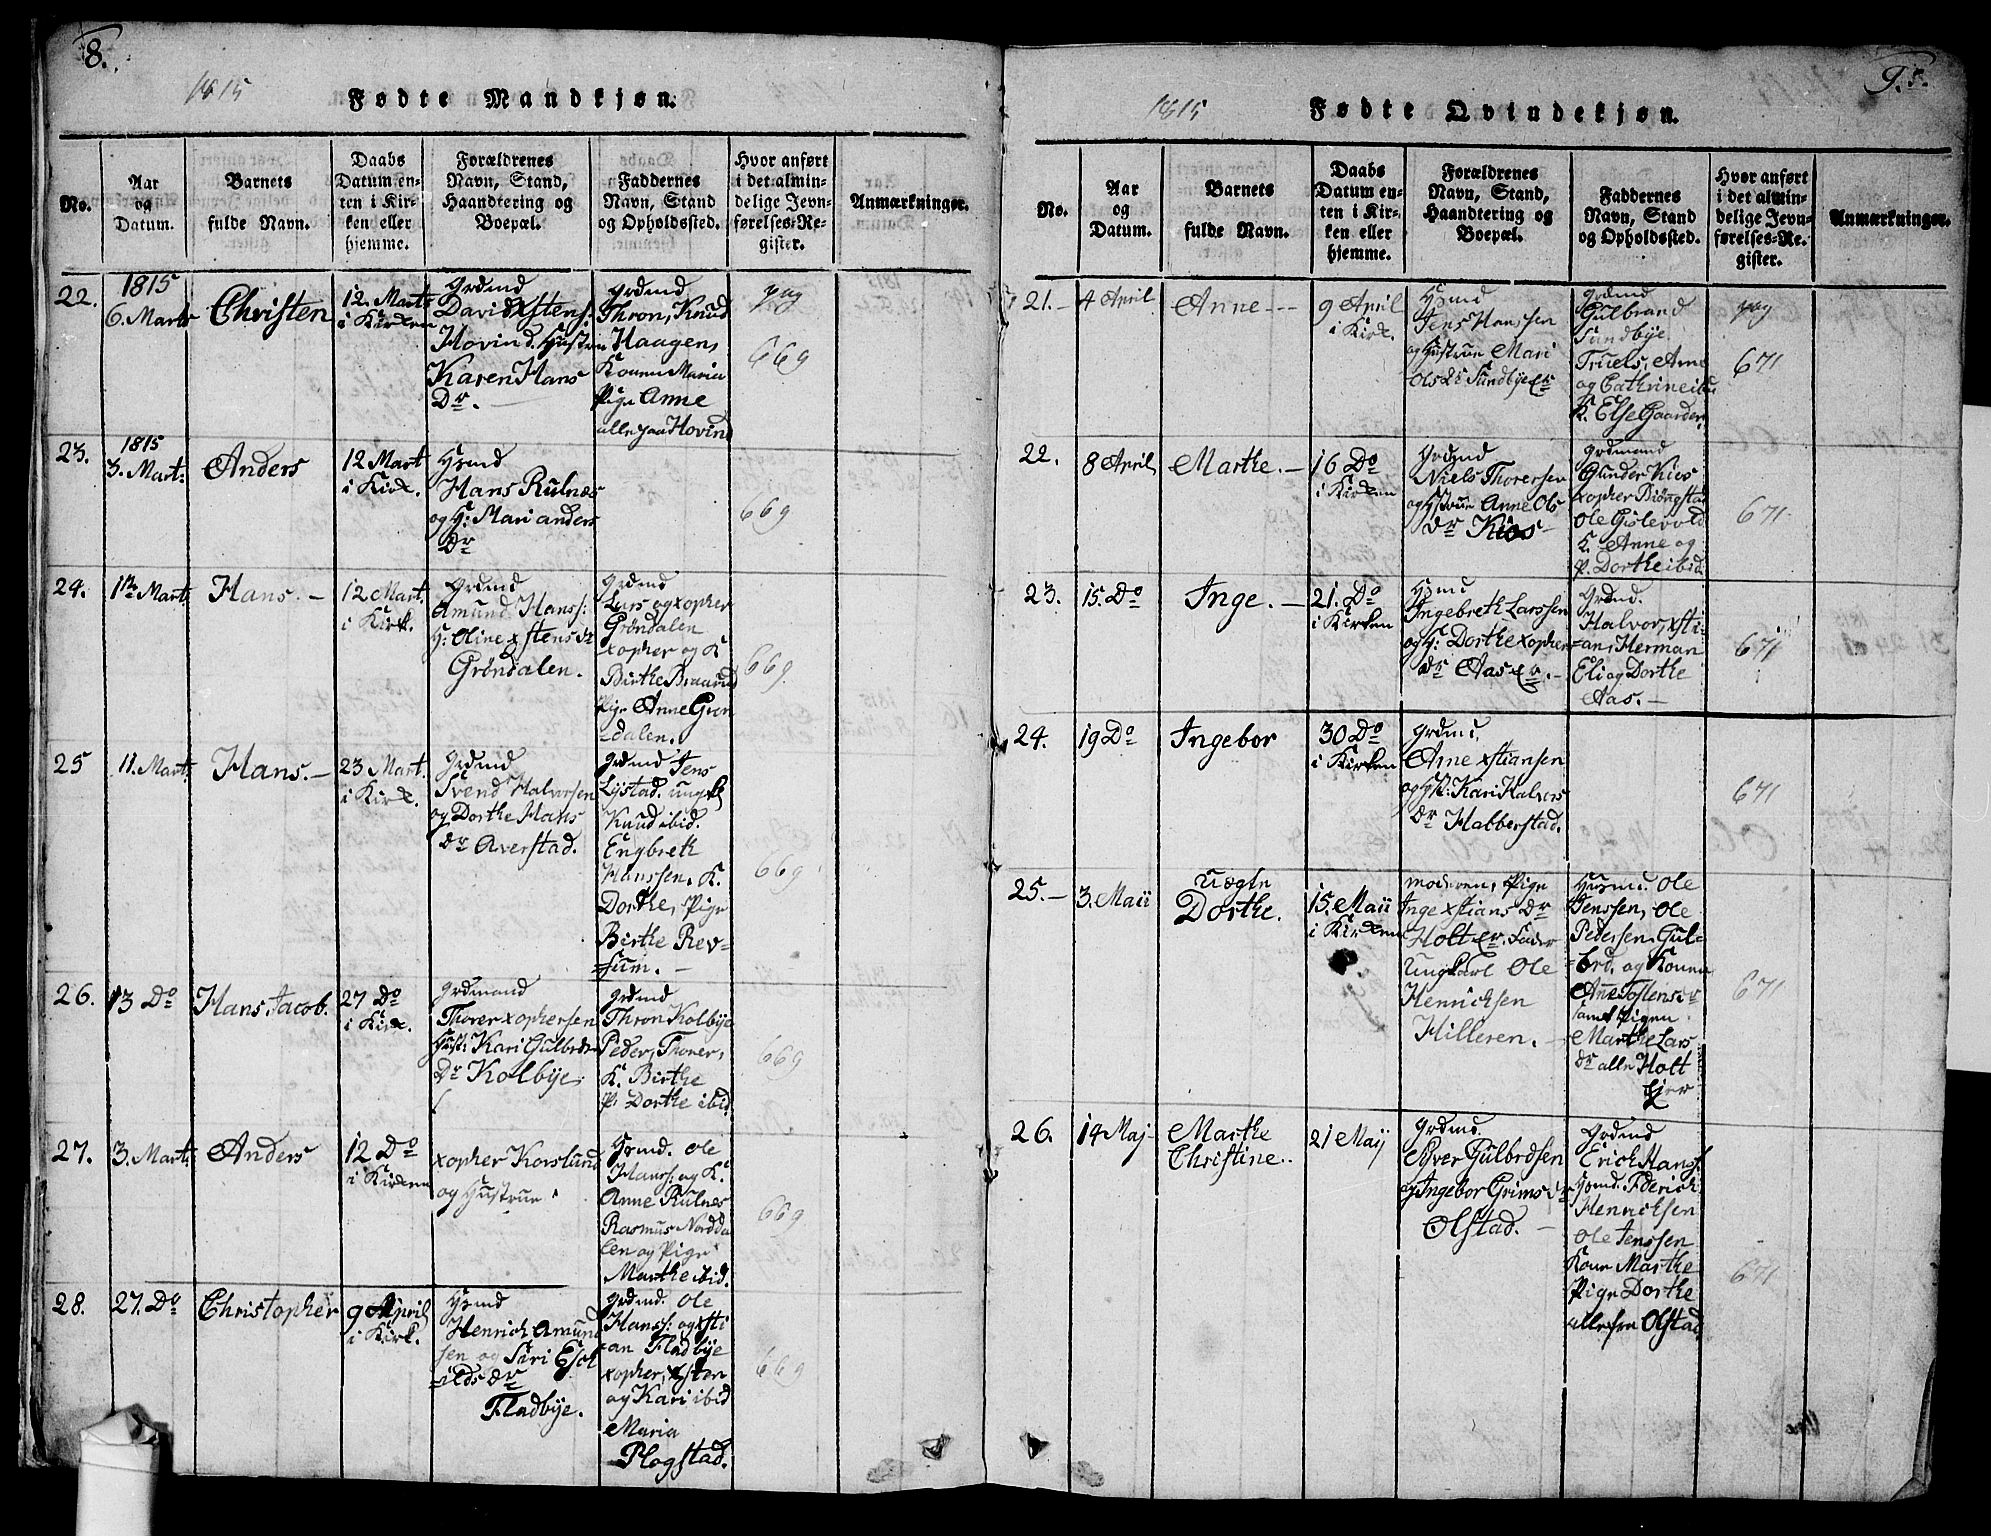 8.
1815
Fødte Mandkjøn.
No.
Aar
og
Datum.
Barnets
fulde Navn.
Daabs
Datum en-
ten i Kir-
ken eller
hjemme.
Forældrenes
Navn, Stand,
Haandtering og
Boepæl.
Faddernes
Navn, Stand
og Opholdssted.
Hvor anført
i det almin-
delige Jevn-
førelses-Re-
gister.
Anmærkninger.
22.
1815
6. Marts
Christen
12. Marts
i Kirken
Grdmd
David Xstens:
Hovind. Hustru
Karen Hans
Dr. –
Grdmd
Thron, Knud
Haagen,
Konen Maria
Pige Anne
alle paa Hovind
pag
669
23.
1815
3. Mart:
Anders
12 Mart
i Kirk.
Hsmd
Hans Rulnæs
og H: Mari anders
Dr
669
24.
Mart:
Hans. –
12 Mart.
i Kirk.
Grdmd
Amund Hanss:
H: Oline xstens dr
Grøndalen.
Grdmd
Lars og xopher
Grøndalen
xopher og K
Birthe Braarud
Pige Anne Grøn
=dalen.
669
25
11. Mart:
Hans. –
23 Mart.
i Kirk.
Grdmd
Svend Halvorsen
og Dorthe Hans
dr Averstad.
Grdmd Jens
Lystad. ungk
Knud ibid.
Engbreth
Hanssen. K.
Dorthe, Pige
Birthe Rev=
=sum. –
669
26.
13 Do
Hans Jacob.
27 Do
i Kirk.
Grdmand
Thorer xophersen
Hust: Kari Gulbrds
Dr Kolbye.
Grdmd
Thron Kolbye
Peder, Thorer,
K. Birthe
P. Dorthe ibid
669
27.
3. Mart:
Anders
12 Do
i Kirken
xopher Korslund
og Hustrue
Hsmd. Ole
Hanss: og K.
Anne Rulnes
Rasmus Nordda
len og Pige
Marthe ibid.
669
28.
27. Do
Christopher
9 April
i Kirk.
Hsmd
Henrich Amund
sen og Siri Esk
=ilds dr
Fladbye.
Grdmd. Ole
Hanss: og xsti
=an Fladbye
xopher, xsten
og Kari ibid
Maria
Plogstad.
669
9.
1815
Fødte Qvindekjøn.
No.
Aar
og
Datum.
Barnets
fulde Navn.
Daabs
Datum en-
ten i Kir-
ken eller
hjemme.
Forældrenes
Navn, Stand,
Haandtering og
Boepæl.
Faddernes
Navn, Stand
og Opholdssted.
Hvor anført
i det almin-
delige Jevn-
førelses-Re-
gister.
Anmærkninger.
21. –
4 April
Anne – –
9 April
i Kirk.
Hsmd
Jens Hanssen
og Hustrue Mari
Ols dr Sundbye Er
Grdmd
Gulbrand
Sundbye.
Truels, Arne
og Cathrine ibid
K. Else Gaarder.
pag
671
22.
8 April
Marthe. –
16 Do
i Kirken
Grdmd
Niels Thoresen
og Hstrue Anne Ols
dr Kios –
Grdmand
Gunder Kios
xopher Biøngstad
Ole Gislevold
K. Anne og
P. Dorthe ibid.
671
23.
15. Do
Inge. –
21. Do
i Kirken
Hsmd
Ingebreth Larssen
og H: Dorthe xopher
dr Aas Er. –
Grdmd.
Halvor, xsti=
=an, Herman
Eli og Dorthe
Aas. –
671
24.
19 Do
Ingebor
30 Do
i Kirken
Grdmd.
Arne xstiansen
og Hst: Kari Halvors
dr Habberstad.
671
25. –
3. Maii
Uægte
Dorthe.
15. Maii
i Kirken
moderen, Pige
Inge xstians dr
Holt Er. Fader
Ungkarl Ole
Henrichsen
Hilleren. –
Husmd. Ole
Jenssen, Ole
Pedersen, Gul=
=brd. og Konen
Anne Tostens dr
samt Pigen
Marthe Lars
dr alle Holt
Ejer
671
26.
14 Maj
Marthe
Christine.
21 Maij
Grdmd.
Syver Gulbrdsen
og Ingebor Grims dr
Olstad. –
Grdmd
Erich Hanss.
Hsmd. Fderich
Henrichsen
Ole Jenssen
Kone Marthe
Pige Dorthe
alle fra Olstad.
671